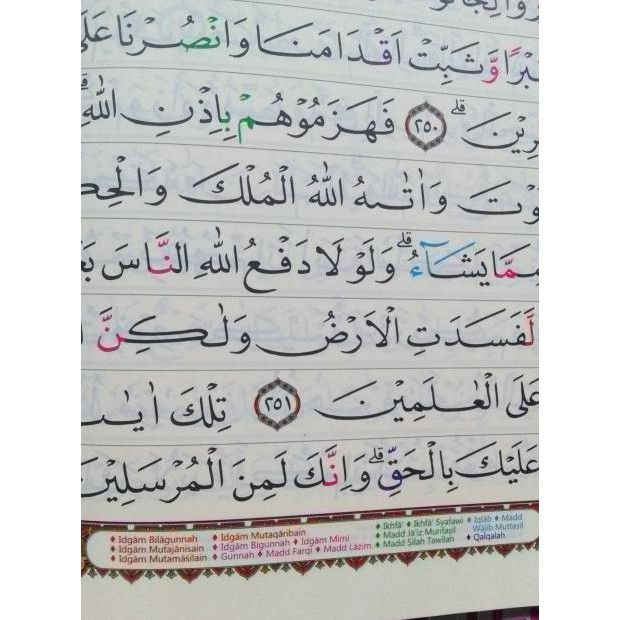 وَّثَبِّتْ اَقْدَامَنَا وَانْصُرْنَا
۝٢٥٠ فَهَزَمُوْهُمْ بِاِذْنِ اللّٰهِ ۗ
وَاٰتٰىهُ اللّٰهُ الْمُلْكَ
مِمَّا يَشَاۤءُ ۗ وَلَوْلَا دَفْعُ اللّٰهِ النَّاسَ
لَّفَسَدَتِ الْاَرْضُ وَلٰكِنَّ
عَلَى الْعٰلَمِيْنَ ۝٢٥١ تِلْكَ
عَلَيْكَ بِالْحَقِّ ۗ وَاِنَّكَ لَمِنَ الْمُرْسَلِيْنَ
♦ Idgām Bilāgunnah ♦ Idgām Mutaqāribain ♦ Ikhfā' ♦ Ikhfā' Syafawi ♦ Iqlāb ♦ Madd Wājib Muttaṣil
♦ Idgām Mutajānisain ♦ Idgām Bigunnah ♦ Idgām Mimi ♦ Madd Jā'iz Munfaṣil
♦ Idgām Mutamāṡilain ♦ Gunnah ♦ Madd Farqi ♦ Madd Lāzim ♦ Madd Ṣilah Ṭawīlah ♦ Qalqalah